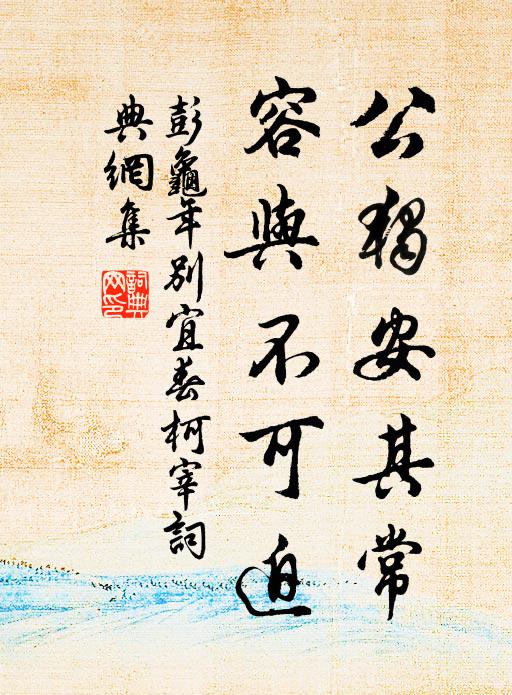 公獨安其常
容與不可迫
彭龜年別宜春柯宰詞
典網集
詞典
网印